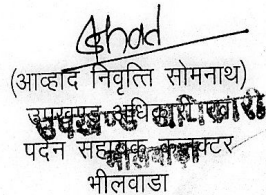 (आव्हाद निवृत्ति सोमनाथ)
उपखण्ड अधिकारी
पदेन सहायक कलक्टर
भीलवाडा